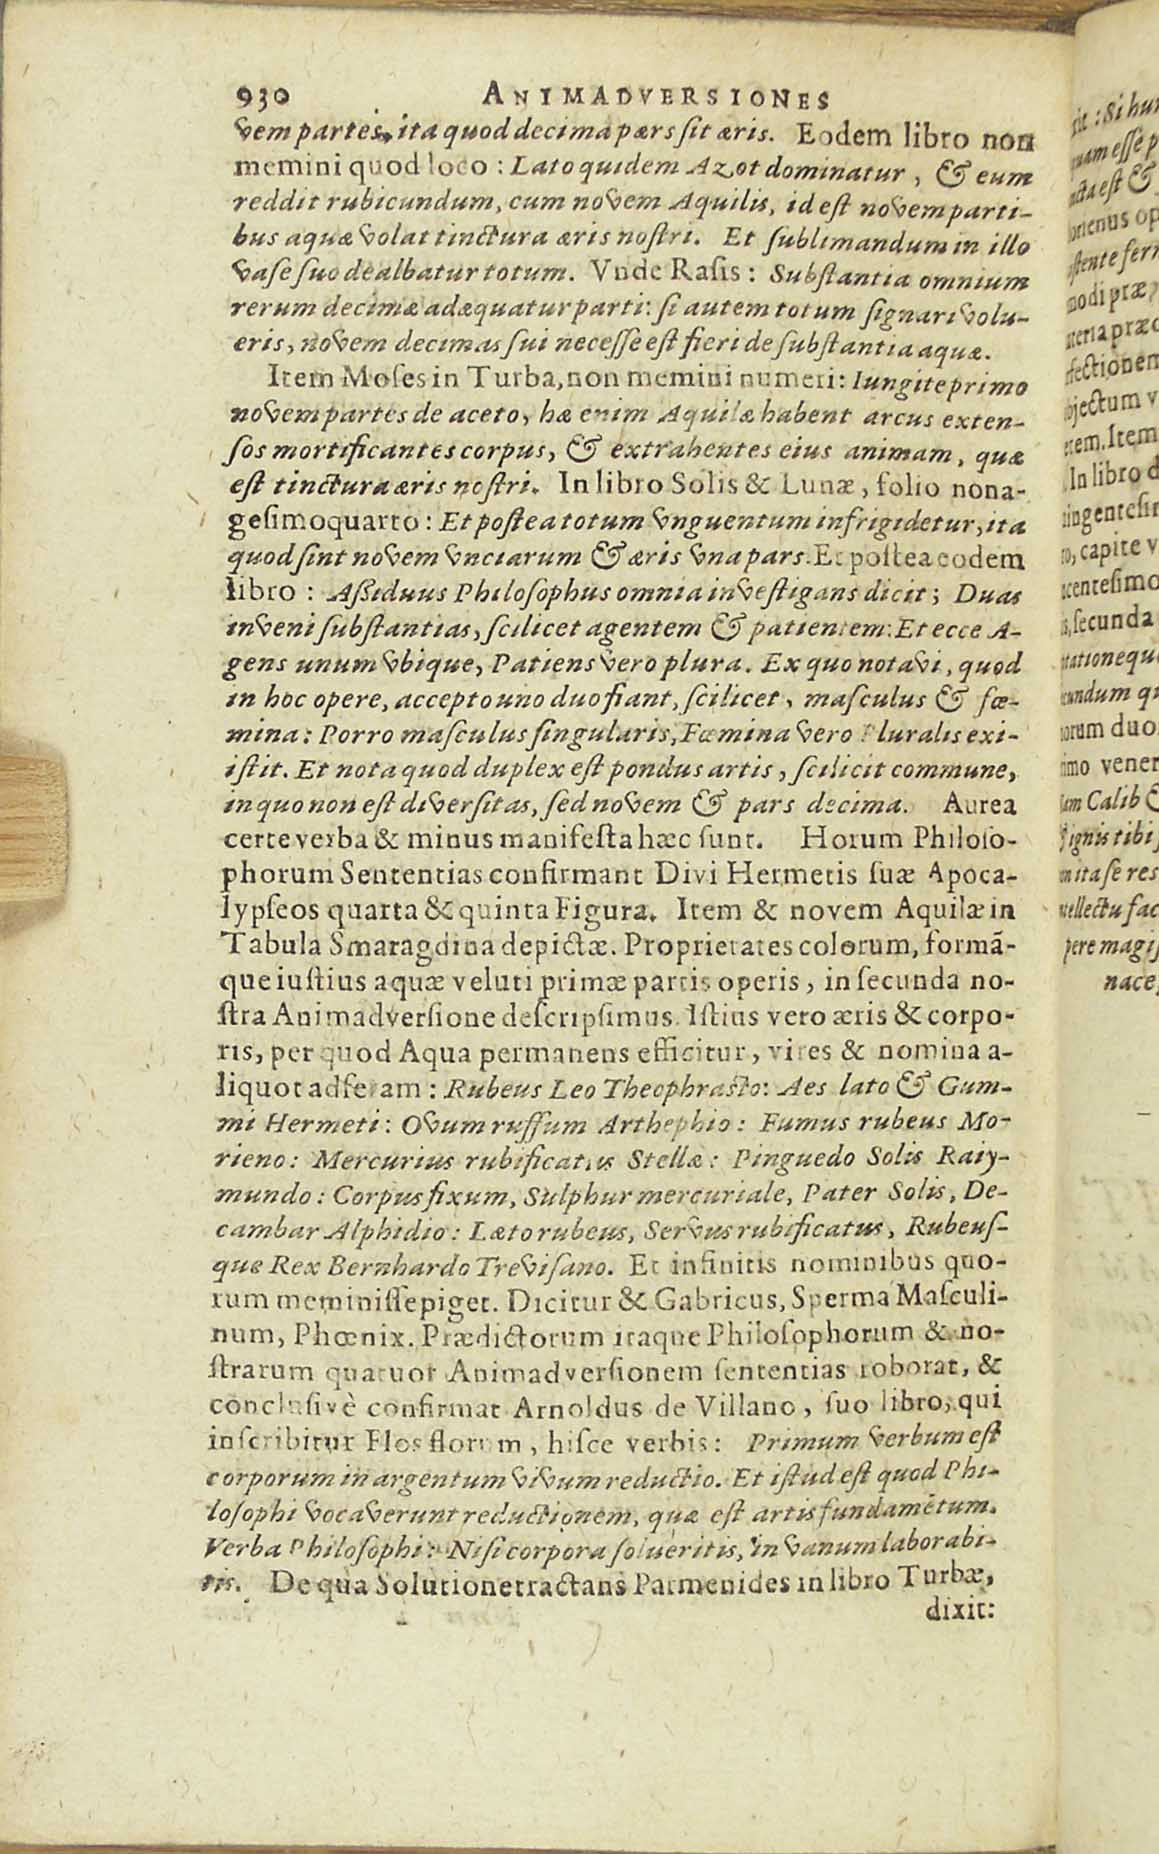 930 ANIMADVERSIONES
vem partes, ita quod decima pars sit æris. Eodem libro non
memini quod loco: Lato quidem Azot dominatur, & eum
reddit rubicundum, cum novem Aquilis, id est novem parti-
bus aquæ volat tinctura æris nostri. Et sublimandum in illo
vase suo dealbatur totum. Vnde Rasis: Substantia omnium
rerum decimæ adæquatur parti: si autem totum signari volu-
eris, novem decimas sui necesse est fieri de substantia aquæ.
Item Moses in Turba, non memini numeri: Iungite primo
novem partes de aceto, hæ enim Aquilæ habent arcus exten-
sos mortificantes corpus, & extrahentes eius animam, quæ
est tinctura æris nostri. In libro Solis & Lunæ, folio nona-
gesimoquarto: Et postea totum vnguentum infrigidetur, ita
quod sint novem vnciarum & æris vna pars. Et postea eodem
libro: Assiduus Philosophus omnia investigans dicit; Duas
inveni substantias, scilicet agentem & patientem: Et ecce A-
gens unum vbique, Patiens vero plura. Ex quo notavi, quod
in hoc opere, accepto uno duo fiant, scilicet, masculus & fœ-
mina: Porro masculus singularis, Fœmina vero Pluralis exi-
istit. Et nota quod duplex est pondus artis, scilicit commune,
in quo non est diversitas, sed novem & pars decima. Aurea
certe verba & minus manifesta hæc sunt. Horum Philoso-
phorum Sententias confirmant Divi Hermetis suæ Apoca-
lypseos quarta & quinta Figura. Item & novem Aquilæ in
Tabula Smaragdina depictæ. Proprietates colorum, formã-
que iustius aquæ veluti primæ partis operis, in secunda no-
stra Animadversione descripsimus. Istius vero æris & corpo-
ris, per quod Aqua permanens efficitur, vires & nomina a-
liquot adferam: Rubeus Leo Theophrasto: Aes lato & Gum-
mi Hermeti: Ovum ruffum Arthephio: Fumus rubeus Mo-
rieno: Mercurius rubificatus Stellæ: Pinguedo Solis Raiy-
mundo: Corpus fixum, Sulphur mercuriale, Pater Solis, De-
cambar Alphidio: Læto rubeus, Servus rubificatus, Rubeus-
que Rex Bernhardo Trevisano. Et infinitis nominibus quo-
rum meminisse piget. Dicitur & Gabricus, Sperma Masculi-
num, Phœnix. Prædictorum itaque Philosophorum & no-
strarum quatuor Animadversionem sententias roborat, &
conclusivè confirmat Arnoldus de Villano, suo libro, qui
inscribitur Flos florum, hisce verbis: Primum verbum est
corporum in argentum vivum reductio. Et istud est quod Phi-
losophi vocaverunt reductionem, quæ est artis fundamẽtum.
Verba Philosophi: Nisi corpora solueritis, in vanum laborabi-
tis. De qua Solutione tractans Parmenides in libro Turbæ,
dixit: